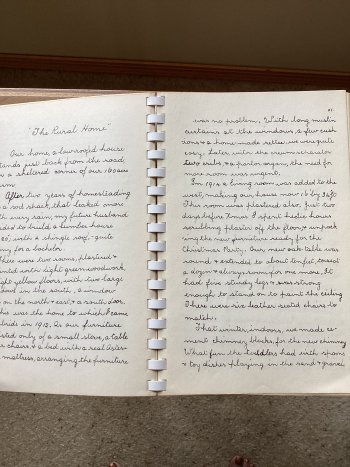 "The Rural Home"
Our home, a low roofed house
stands just back from the road,
in a sheltered corner of our 100 acre
farm.
After two years of homesteading
in a sod shack, that leaked more
with every rain, my future husband
decided to build a lumber house
20', with a shingle roof, - quite
for a bachelor.
There were two rooms, plastered &
painted with light green woodwork,
light yellow floors, with two large
windows in the south, a window
on the north & east & a south door.
This was the home to which I came
bride in 1913. As our furniture
consisted only of a small stove, a table
chairs, & a bed with a real
mattress, arranging the furniture
was no problem. With long muslin
curtains at the windows, a few cush-
ions & a home made settee we were quite
cosy. Later with the
two cribs, & a parlor organ, the need for
more room was urgent.
In 1914 a living room was added to the
west, making our house now
This room was plastered also. Just two
days before Xmas I spent hectic hours
scrubbing plaster off the floor, & unpack-
ing the new furniture ready for the
Christmas Party. Our new oak table was
round & extended to about ten feet, to seat
a dozen & always room for one more. It
had five sturdy legs & was strong
enough to stand on to paint the ceiling
There were six leather seated chairs to
match.
That winter, indoors, we made ce-
ment chimney blocks, for the new chimney
What fun the toddlers had with spoons
& toy dishes playing in the sand & gravel